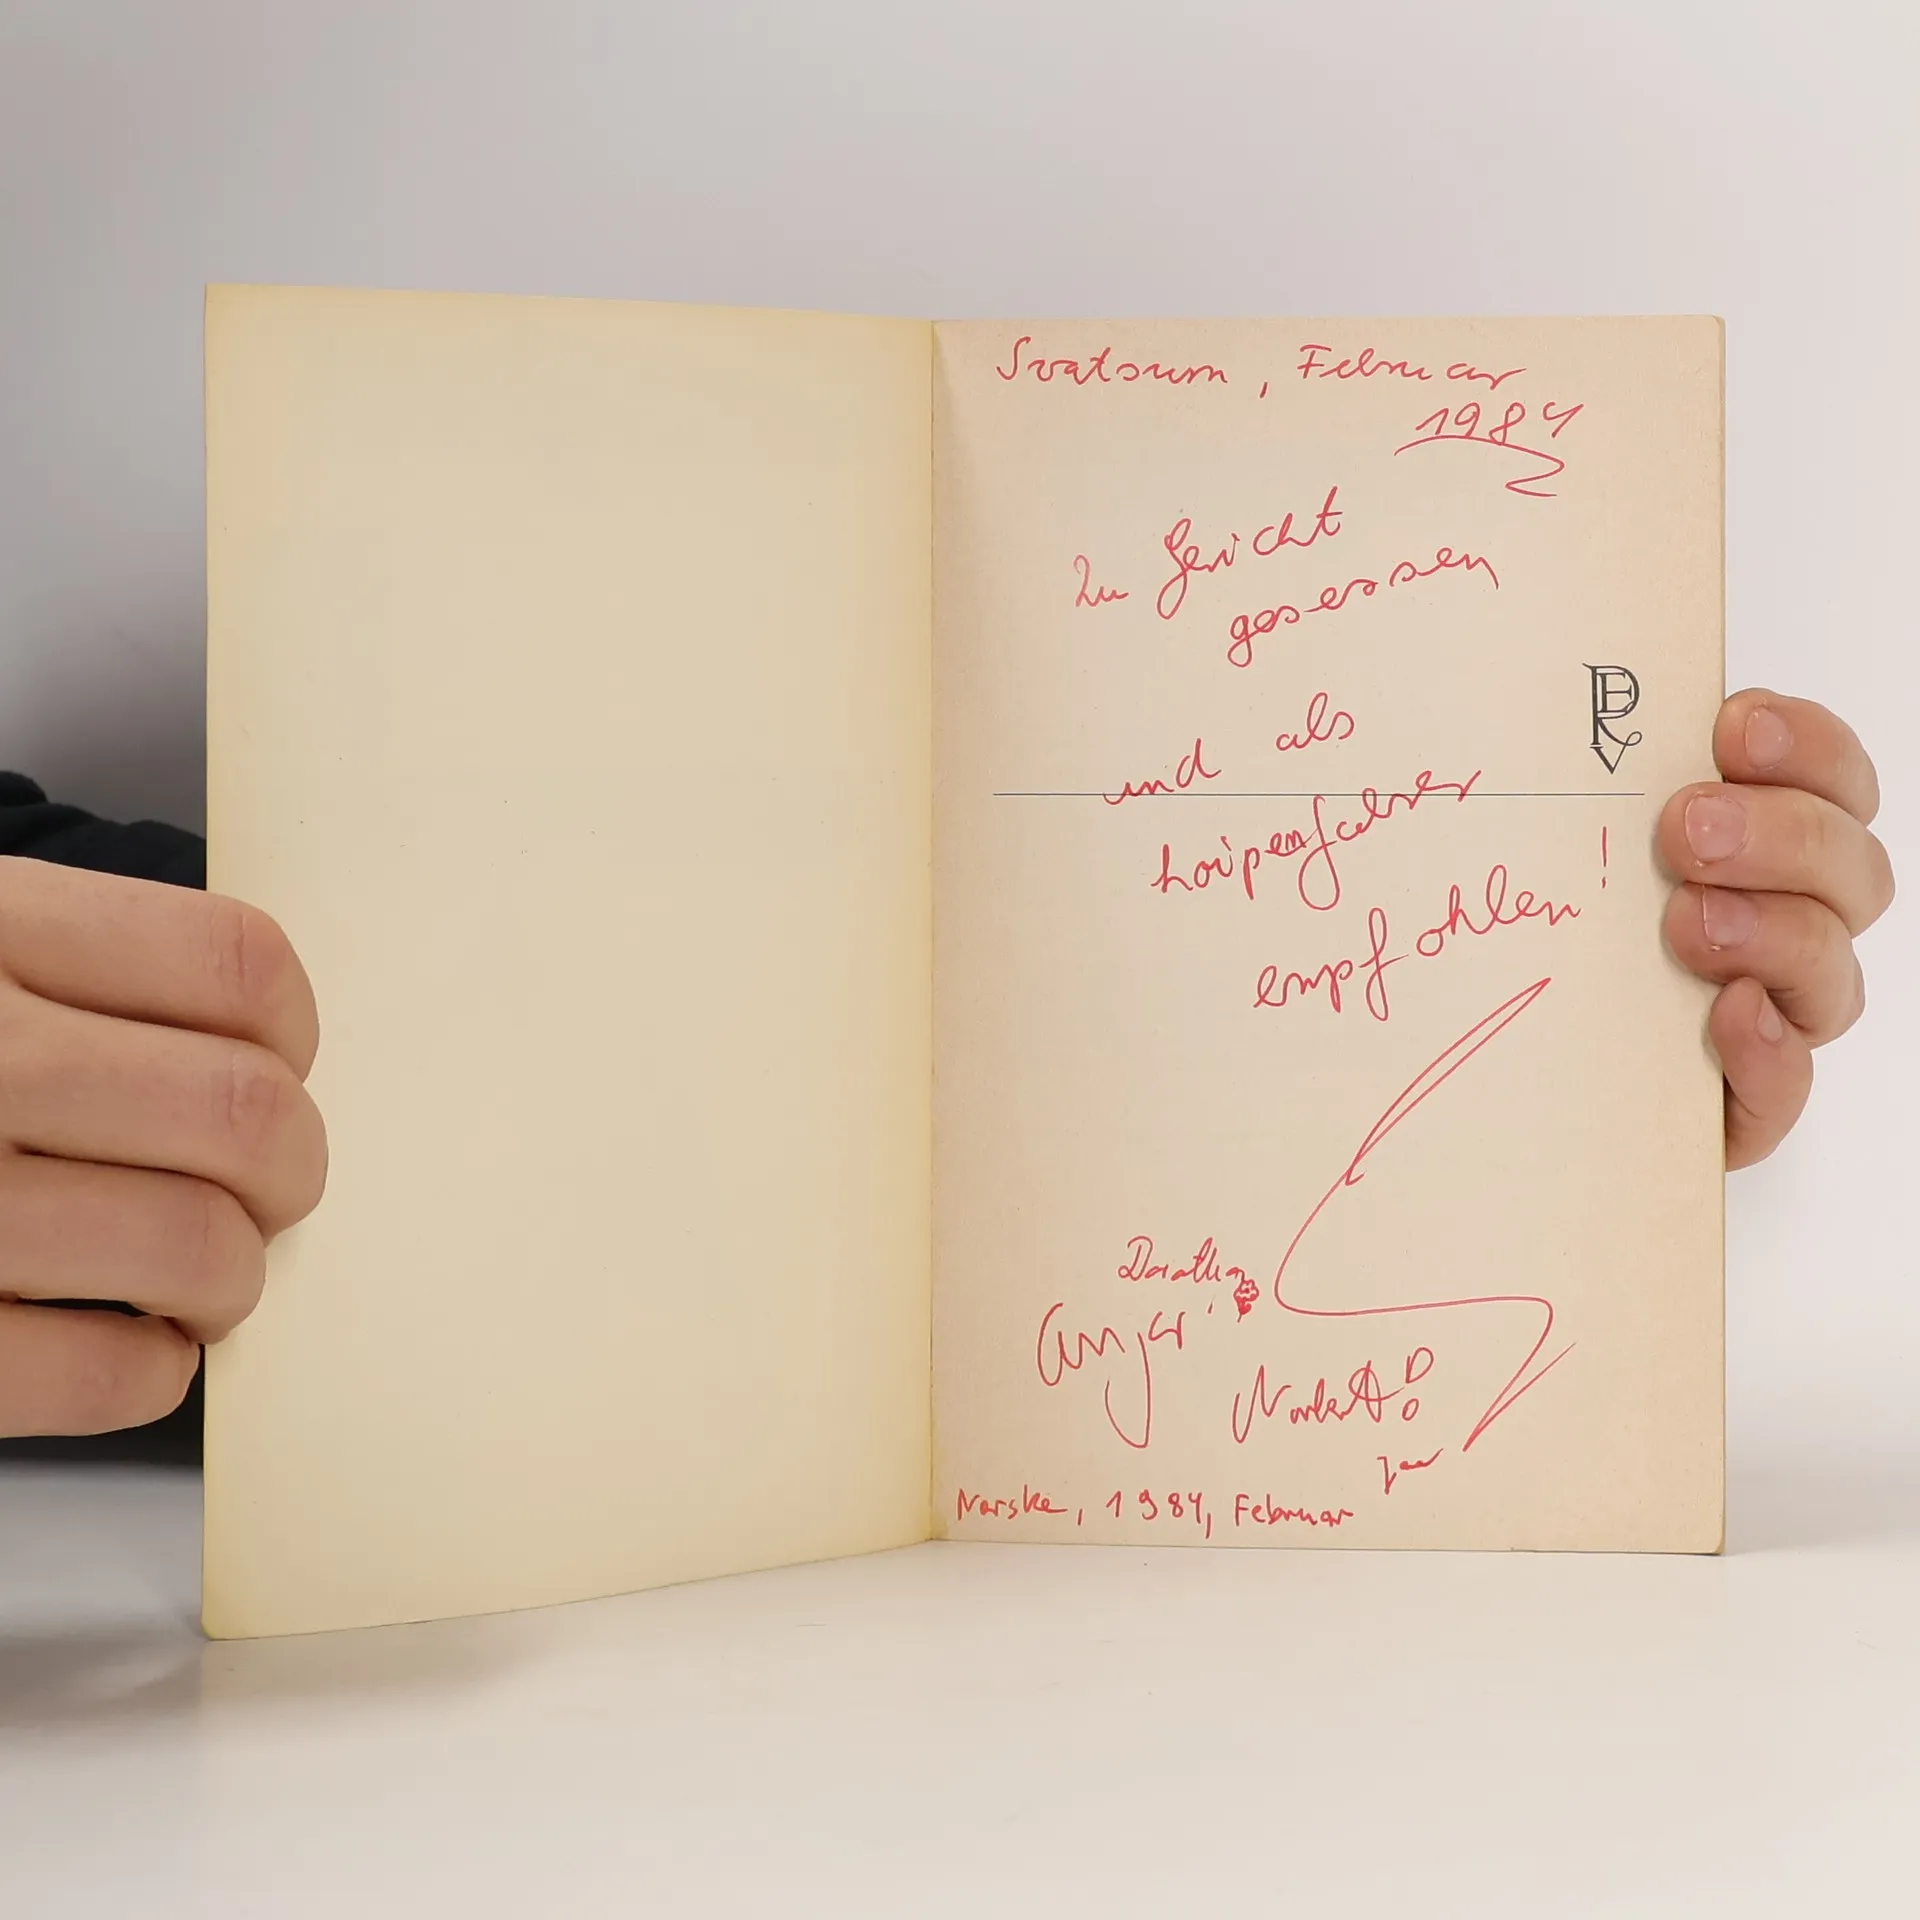 Svatsum, Februar
1984
Zu Gericht
gesessen
und als
hoipenfahrer
empfohlen!
PERV
Dorothea
Anja
Norbert
Norske, 1984, Februar